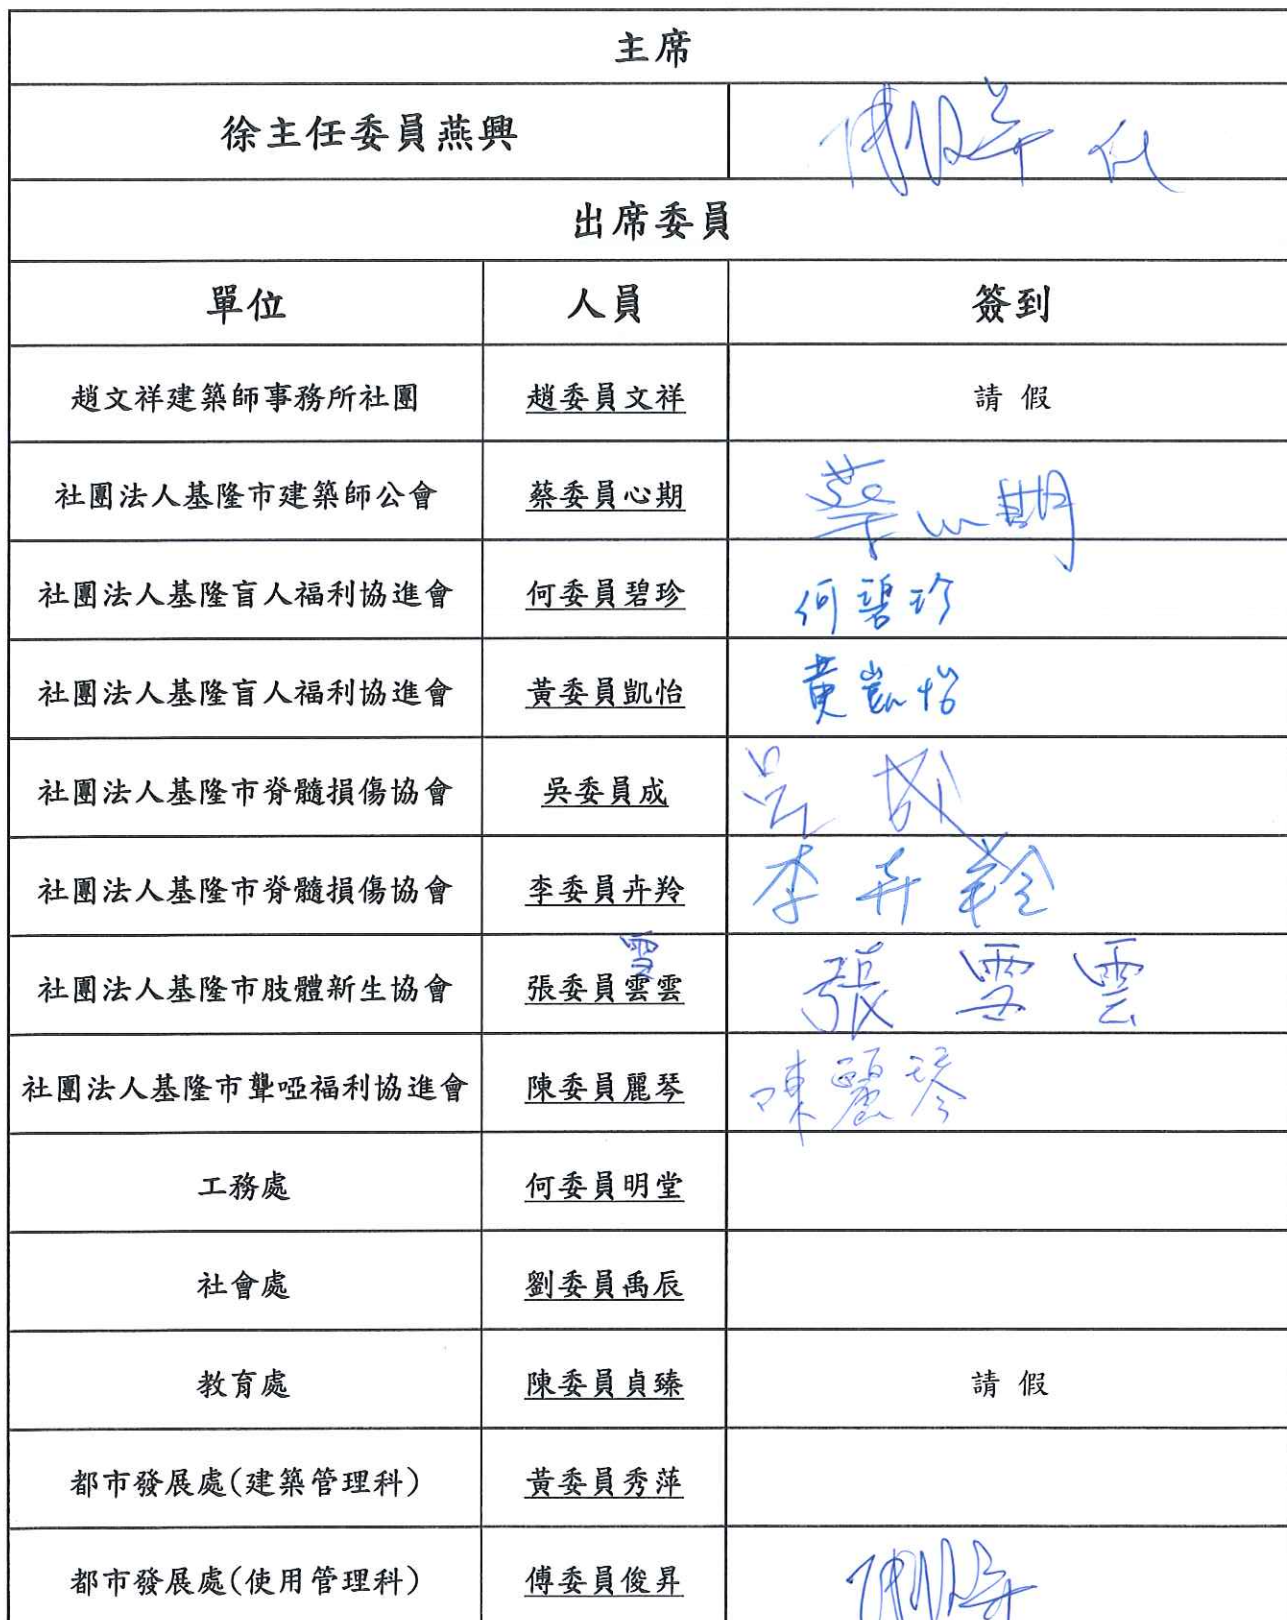 主席
徐主任委員燕興 傅俊昇 代
出席委員
單位 人員 簽到
趙文祥建築師事務所社團 趙委員文祥 請假
社團法人基隆市建築師公會 蔡委員心期 蔡心期
社團法人基隆盲人福利協進會 何委員碧珍 何碧珍
社團法人基隆盲人福利協進會 黃委員凱怡 黃凱怡
社團法人基隆市脊髓損傷協會 吳委員成 吳成
社團法人基隆市脊髓損傷協會 李委員卉羚 李卉羚
雪
社團法人基隆市肢體新生協會 張委員雲雲 張雪雲
社團法人基隆市聾啞福利協進會 陳委員麗琴 陳麗琴
工務處 何委員明堂
社會處 劉委員禹辰
教育處 陳委員貞臻 請假
都市發展處(建築管理科) 黃委員秀萍
都市發展處(使用管理科) 傅委員俊昇 傅俊昇